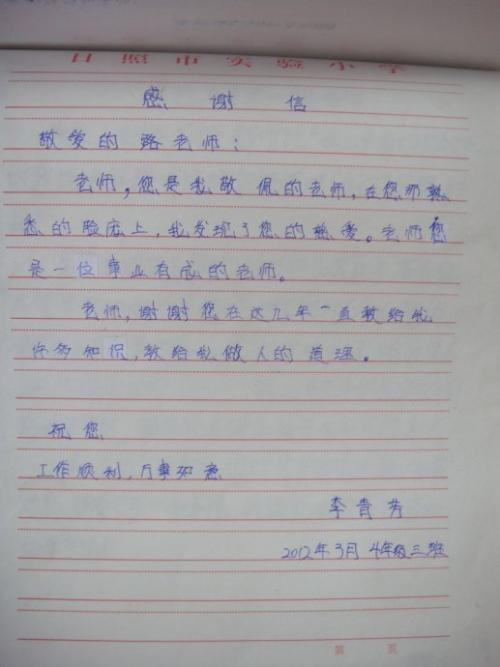 日照市实验小学
感谢信
敬爱的路老师:
老师,您是我敬佩的老师,在您那熟
悉的脸庞上,我发现了您的热爱。老师您
是一位事业有成的老师。
老师,谢谢您在这几年一直教给我
许多知识,教给我做人的道理。
祝您
工作顺利,万事如意
李青芳
2012年3月4年级三班
第 页